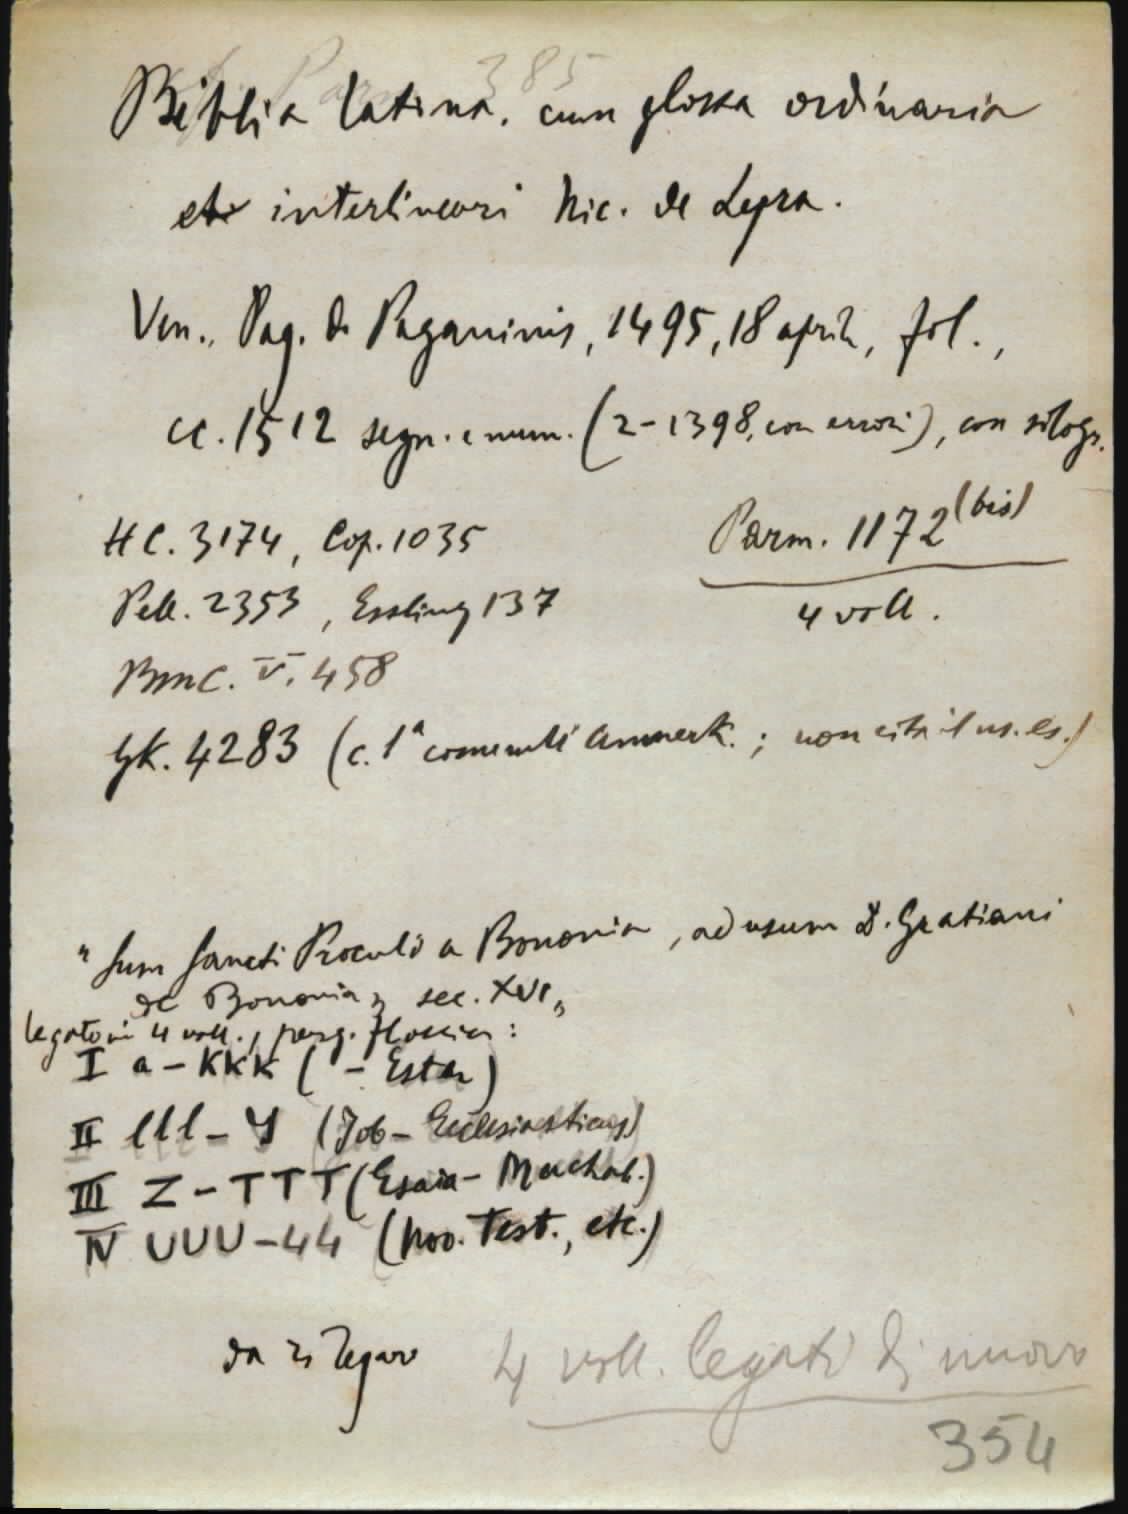 385
Biblia latina. cum glossa ordinaria
et interlineari Nic. de Lyra.
Ven., Pag. de Paganinis, 1495, 18 april, fol.,
cc. 1512 segn. e num. (2-1398, con errori), con silogr.
HC. 3174, Cop. 1035
Parm. 1172 (bis)
Pell. 2353, Essling 137
4 voll.
BMC. V. 458
GK. 4283 (c. 1ª Anmerk.; non cita il ns. es.)
"Sum Sancti Proculi a Bononia, ad usum D. Gratiani
de Bononia„ sec. XVI„
legato in 4 voll., perg. floscia:
I a-KKK ( - Ester)
II lll-Y (Job-Ecclesiasticus)
III Z-TTT (Esaia-Machab.)
IV UUU-44 (Nov. Test., etc.)
da rilegare
4 voll. legati di nuovo
354